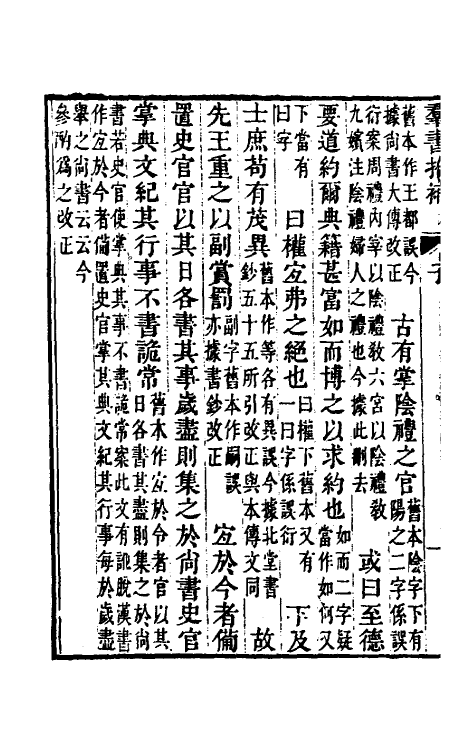 羣書拾補 子
舊本作王都誤今
據尚書大傳改正
古有掌陰禮之官
舊本陰字下有
陽之二字係誤
衍案周禮內宰以陰禮敎六宮以陰禮敎
九嬪注陰禮婦人之禮也今據此刪去
或曰至德
要道約爾典籍甚富如而博之以求約也
如而二字疑
當作如何又
下當有
曰字
曰權宐弗之絕也
曰權下舊本又有
一曰字係誤衍
下及
士庶苟有茂異
舊本作等各有異誤今據北堂書
鈔五十五所引改正與本傳文同
故
先王重之以副賞罰
副字舊本作嗣誤
亦據書鈔改正
宐於今者備
置史官官以其日各書其事歲盡則集之於尚書史官
掌典文紀其行事不書詭常
舊本作宐於今者官以其
日各書其盡則集之於尚
書若史官使掌典其事不書詭常案此文有訛脫漢書
作宐於今者備置史官掌其典文紀其行事每於歲盡
舉之尚書云云今
參酌爲之改正